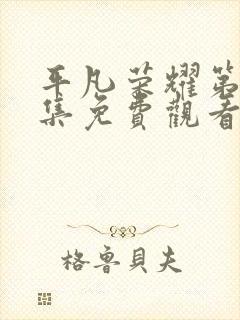 平凡荣耀第
集免費觀看
格魯貝夫